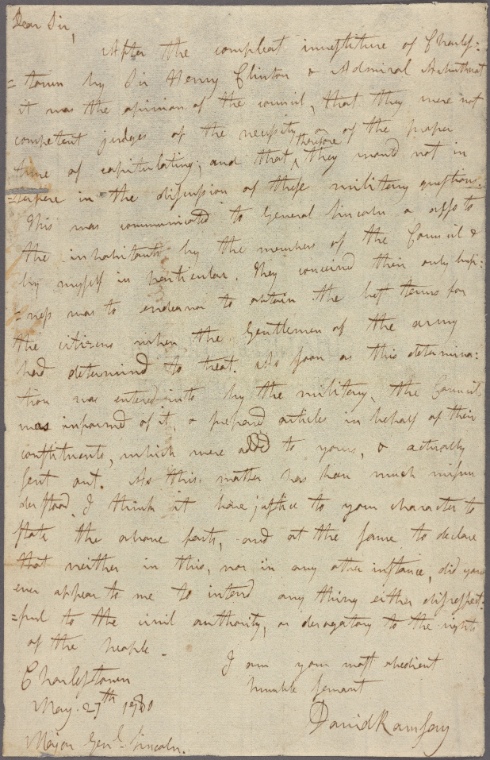 Dear Sir,
After the compleat investiture of Charles:
=town by Sir Henry Clinton & Admiral Arbuthnot
it was the opinion of the council, that they were not
competent judges of the necessity or of the proper
time of capitulating; and that therefore they would not in
=terfere in the discussion of these military questions
This was communicated to General Lincoln & also to
the inhabitants by the members of the Council &
by myself in particular. They conceived their only busi:
=ness was to endeavor to obtain the best terms for
the citizens when the Gentlemen of the army
had determined to treat. As soon as this determina:
tion was entered into by the military, the Council
was informed of it & prepared articles in behalf of their
constituents, which were added to yours, & actually
sent out. As this matter has been much misun
derstood, I think it bare justice to your character to
state the above facts, and at the same to declare
that neither in this, nor in any other instance, did you
ever appear to me to intend any thing either disrespect:
=ful to the civil authority, or derogatory to the rights
of the people.
I am your most obedient
humble servant
David Ramsay
Charlestown
May 27th 1780
Major Genl. Lincoln.